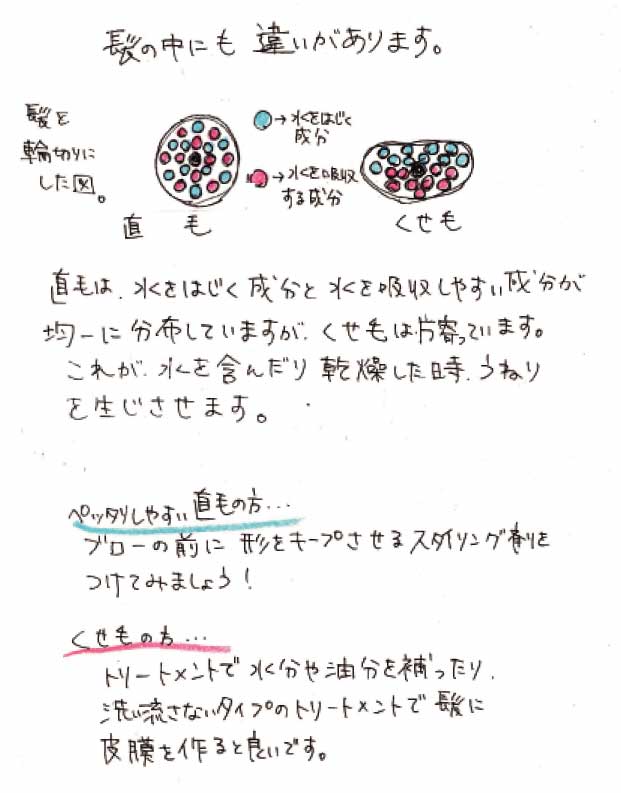 髪の中にも違いがあります。
髪を
輪切りに
した図。
直毛
→水をはじく
成分
→水を吸収
する成分
くせ毛
直毛は、水をはじく成分と水を吸収しやすい成分が
均一に分布していますが、くせ毛は片寄っています。
これが、水を含んだり乾燥した時、うねり
を生じさせます。
ペッタリしやすい直毛の方…
ブローの前に形をキープさせるスタイリング剤を
つけてみましょう!
くせ毛の方…
トリートメントで水分や油分を補ったり、
洗い流さないタイプのトリートメントで髪に
皮膜を作ると良いです。